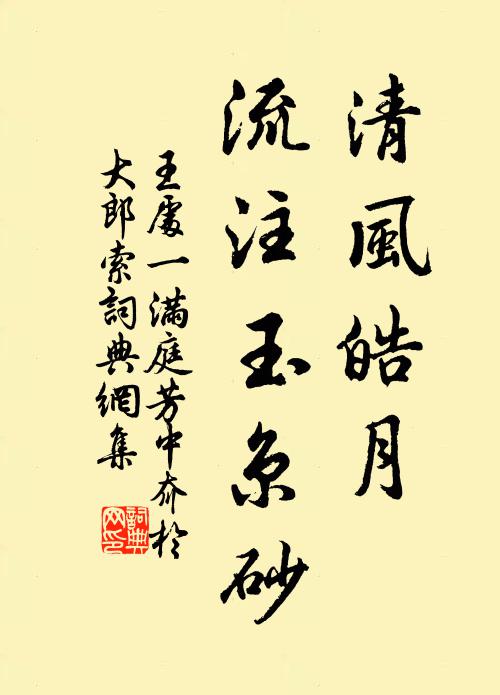 清風皓月
流注玉京砂
王處一滿庭芳中夼於
大郎索詞典網集
詞典
网印